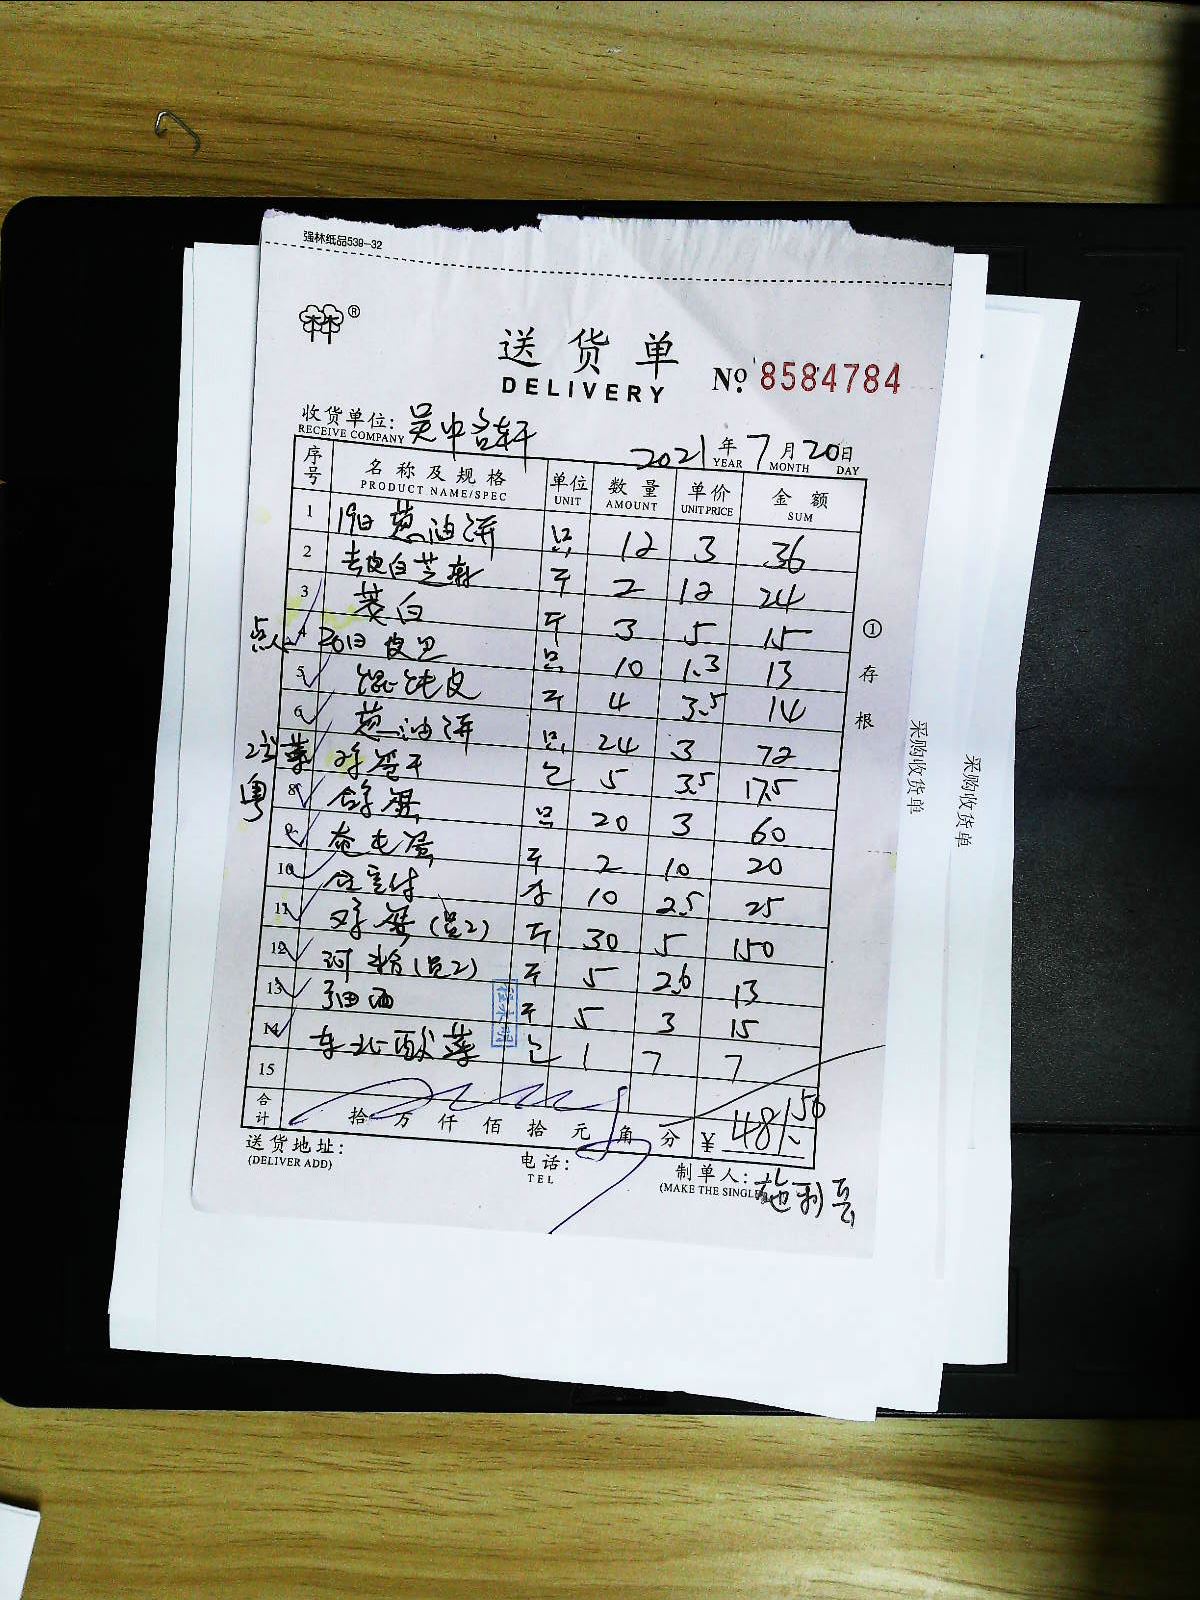 强林纸品539-32
®
送货单
DELIVERY
№ 8584784
收货单位: 吴中名轩
RECEIVE COMPANY
2021年7月20日
YEAR MONTH DAY
序号 名称及规格 单位 数量 单价 金额
PRODUCT NAME/SPEC UNIT AMOUNT UNIT PRICE SUM
1 19日葱油饼 只 12 3 36
2 去皮白芝麻 斤 2 12 24
3 茭白 斤 3 5 15
点心 4 20日皮旦 只 10 1.3 13
5 馄饨皮 斤 4 3.5 14
6 葱油饼 只 24 3 72
干 包 5 3.5 17.5
粤 8 蛋 只 20 3 60
9 斤 2 10 20
10 10 2.5 25
11 鸡蛋(员2) 斤 30 5 150
12 河粉(员2) 斤 5 2.6 13
13 斤 5 3 15
14 东北酸菜 包 1 7 7
15
合计 拾 万 仟 佰 拾 元 角 分 ¥ 481.50
送货地址:
(DELIVER ADD)
电话:
TEL
制单人: 施利芸
(MAKE THE SINGLE
①存根
采购收货单
采购收货单